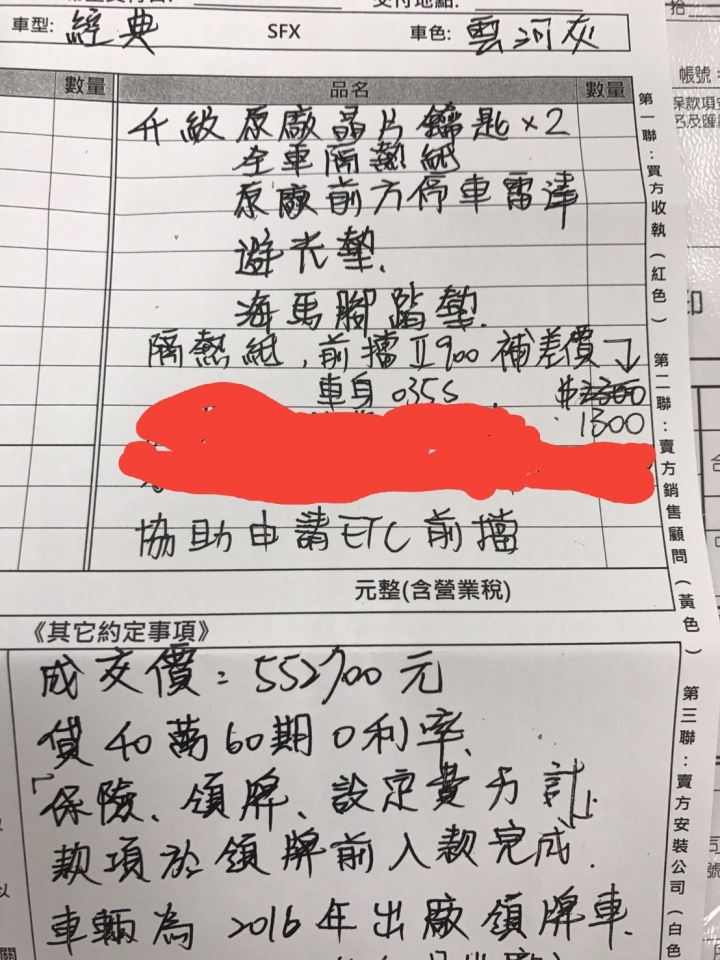 交付地點:
車型: 經典 SFX 車色: 雲河灰
數量 品名 數量
升級原廠晶片鑰匙×2
全車隔熱紙
原廠前方停車雷達
避光墊.
海馬腳踏墊.
隔熱紙,前擋Ⅱ900補差價↓
車身035S
1300
協助申請ETC前擋
元整(含營業稅)
《其它約定事項》
成交價:552700元
貸40萬60期0利率.
保險、領牌、設定費另計.
款項於領牌前入款完成.
車輛為2016年出廠領牌車.
第一聯:買方收執(紅色)
第二聯:賣方銷售顧問(黃色)
第三聯:賣方安裝公司(白色
帳號: